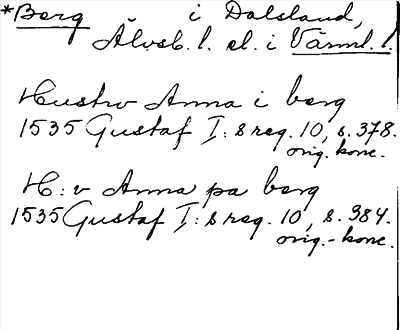 *Berg i Dalsland,
Älvsb. l. el. i Värml. l.
Hustrv Anna i berg
1535 Gustaf I: s reg. 10, s. 378.
orig. konc.
H: v Anna pa berg
1535 Gustaf I: s reg. 10, s. 384.
orig.- konc.